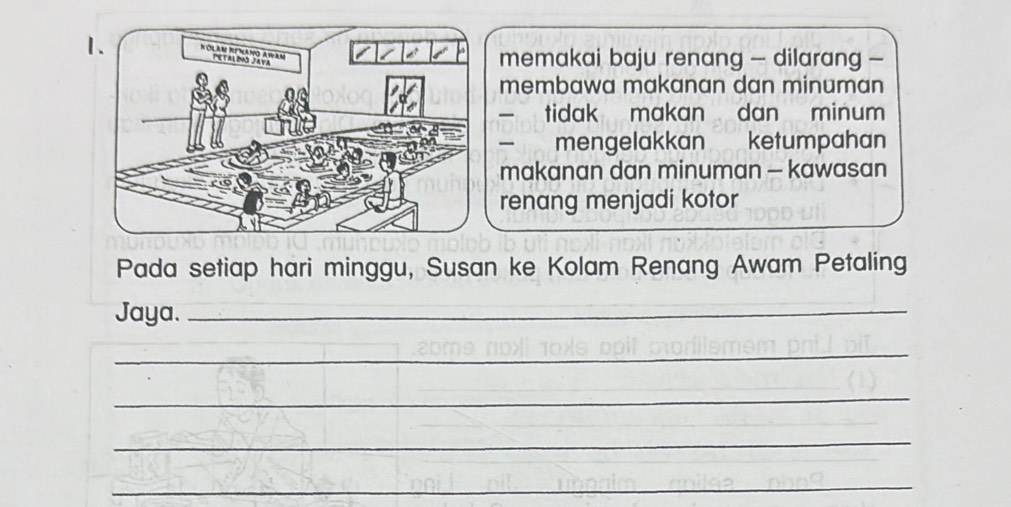 1.
KOLAM RENANG AWAM
PETALING JAYA
memakai baju renang – dilarang –
membawa makanan dan minuman
– tidak makan dan minum
– mengelakkan ketumpahan
makanan dan minuman – kawasan
renang menjadi kotor
Pada setiap hari minggu, Susan ke Kolam Renang Awam Petaling
Jaya.